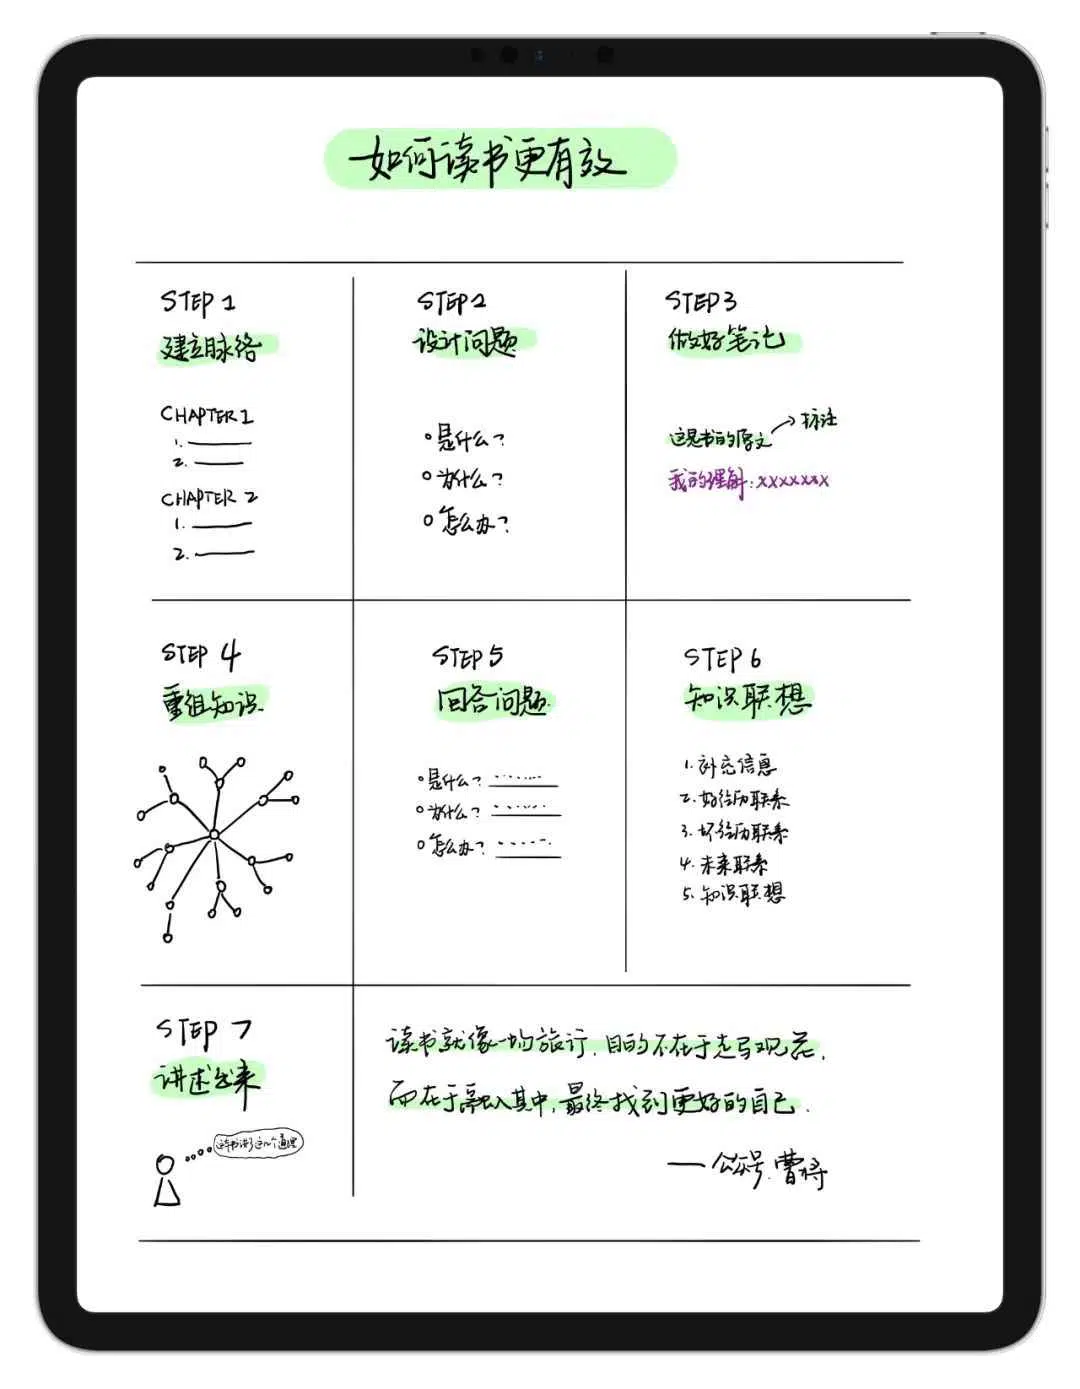 如何读书更有效
STEP 1
建立脉络
CHAPTER 1
1.
2.
CHAPTER 2
1.
2.
STEP 2
设计问题
是什么?
为什么?
怎么办?
STEP 3
做好笔记
这是书的原文 → 标注
我的理解:xxxxxxx
STEP 4
重组知识
STEP 5
回答问题
是什么?
为什么?
怎么办?
STEP 6
知识联想
1. 补充信息
2. 好经历联系
3. 坏经历联系
4. 未来联系
5. 知识联想
STEP 7
讲述出来
这本书讲了这几个道理
读书就像一场旅行,目的不在于走马观花,
而在于融入其中,最终找到更好的自己.
——公众号 曹将